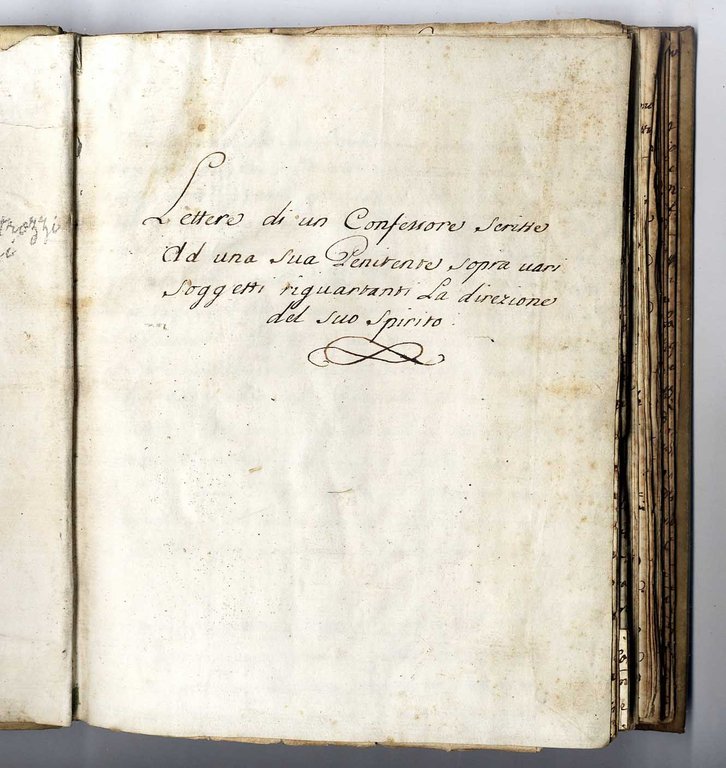 Lettere di un Confessore scritte
Ad una sua Penitente sopra vari
soggetti riguartanti La direzione
del suo spirito.